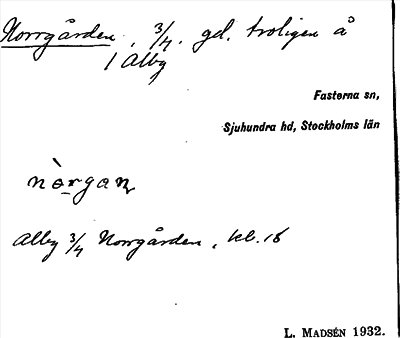 Norrgården. 3/4. gd. troligen å
1 Alby
Fasterna sn,
Sjuhundra hd, Stockholms län
nòrgan
Alby 3/4 Norrgården, kl. 18
L. MADSÉN 1932.